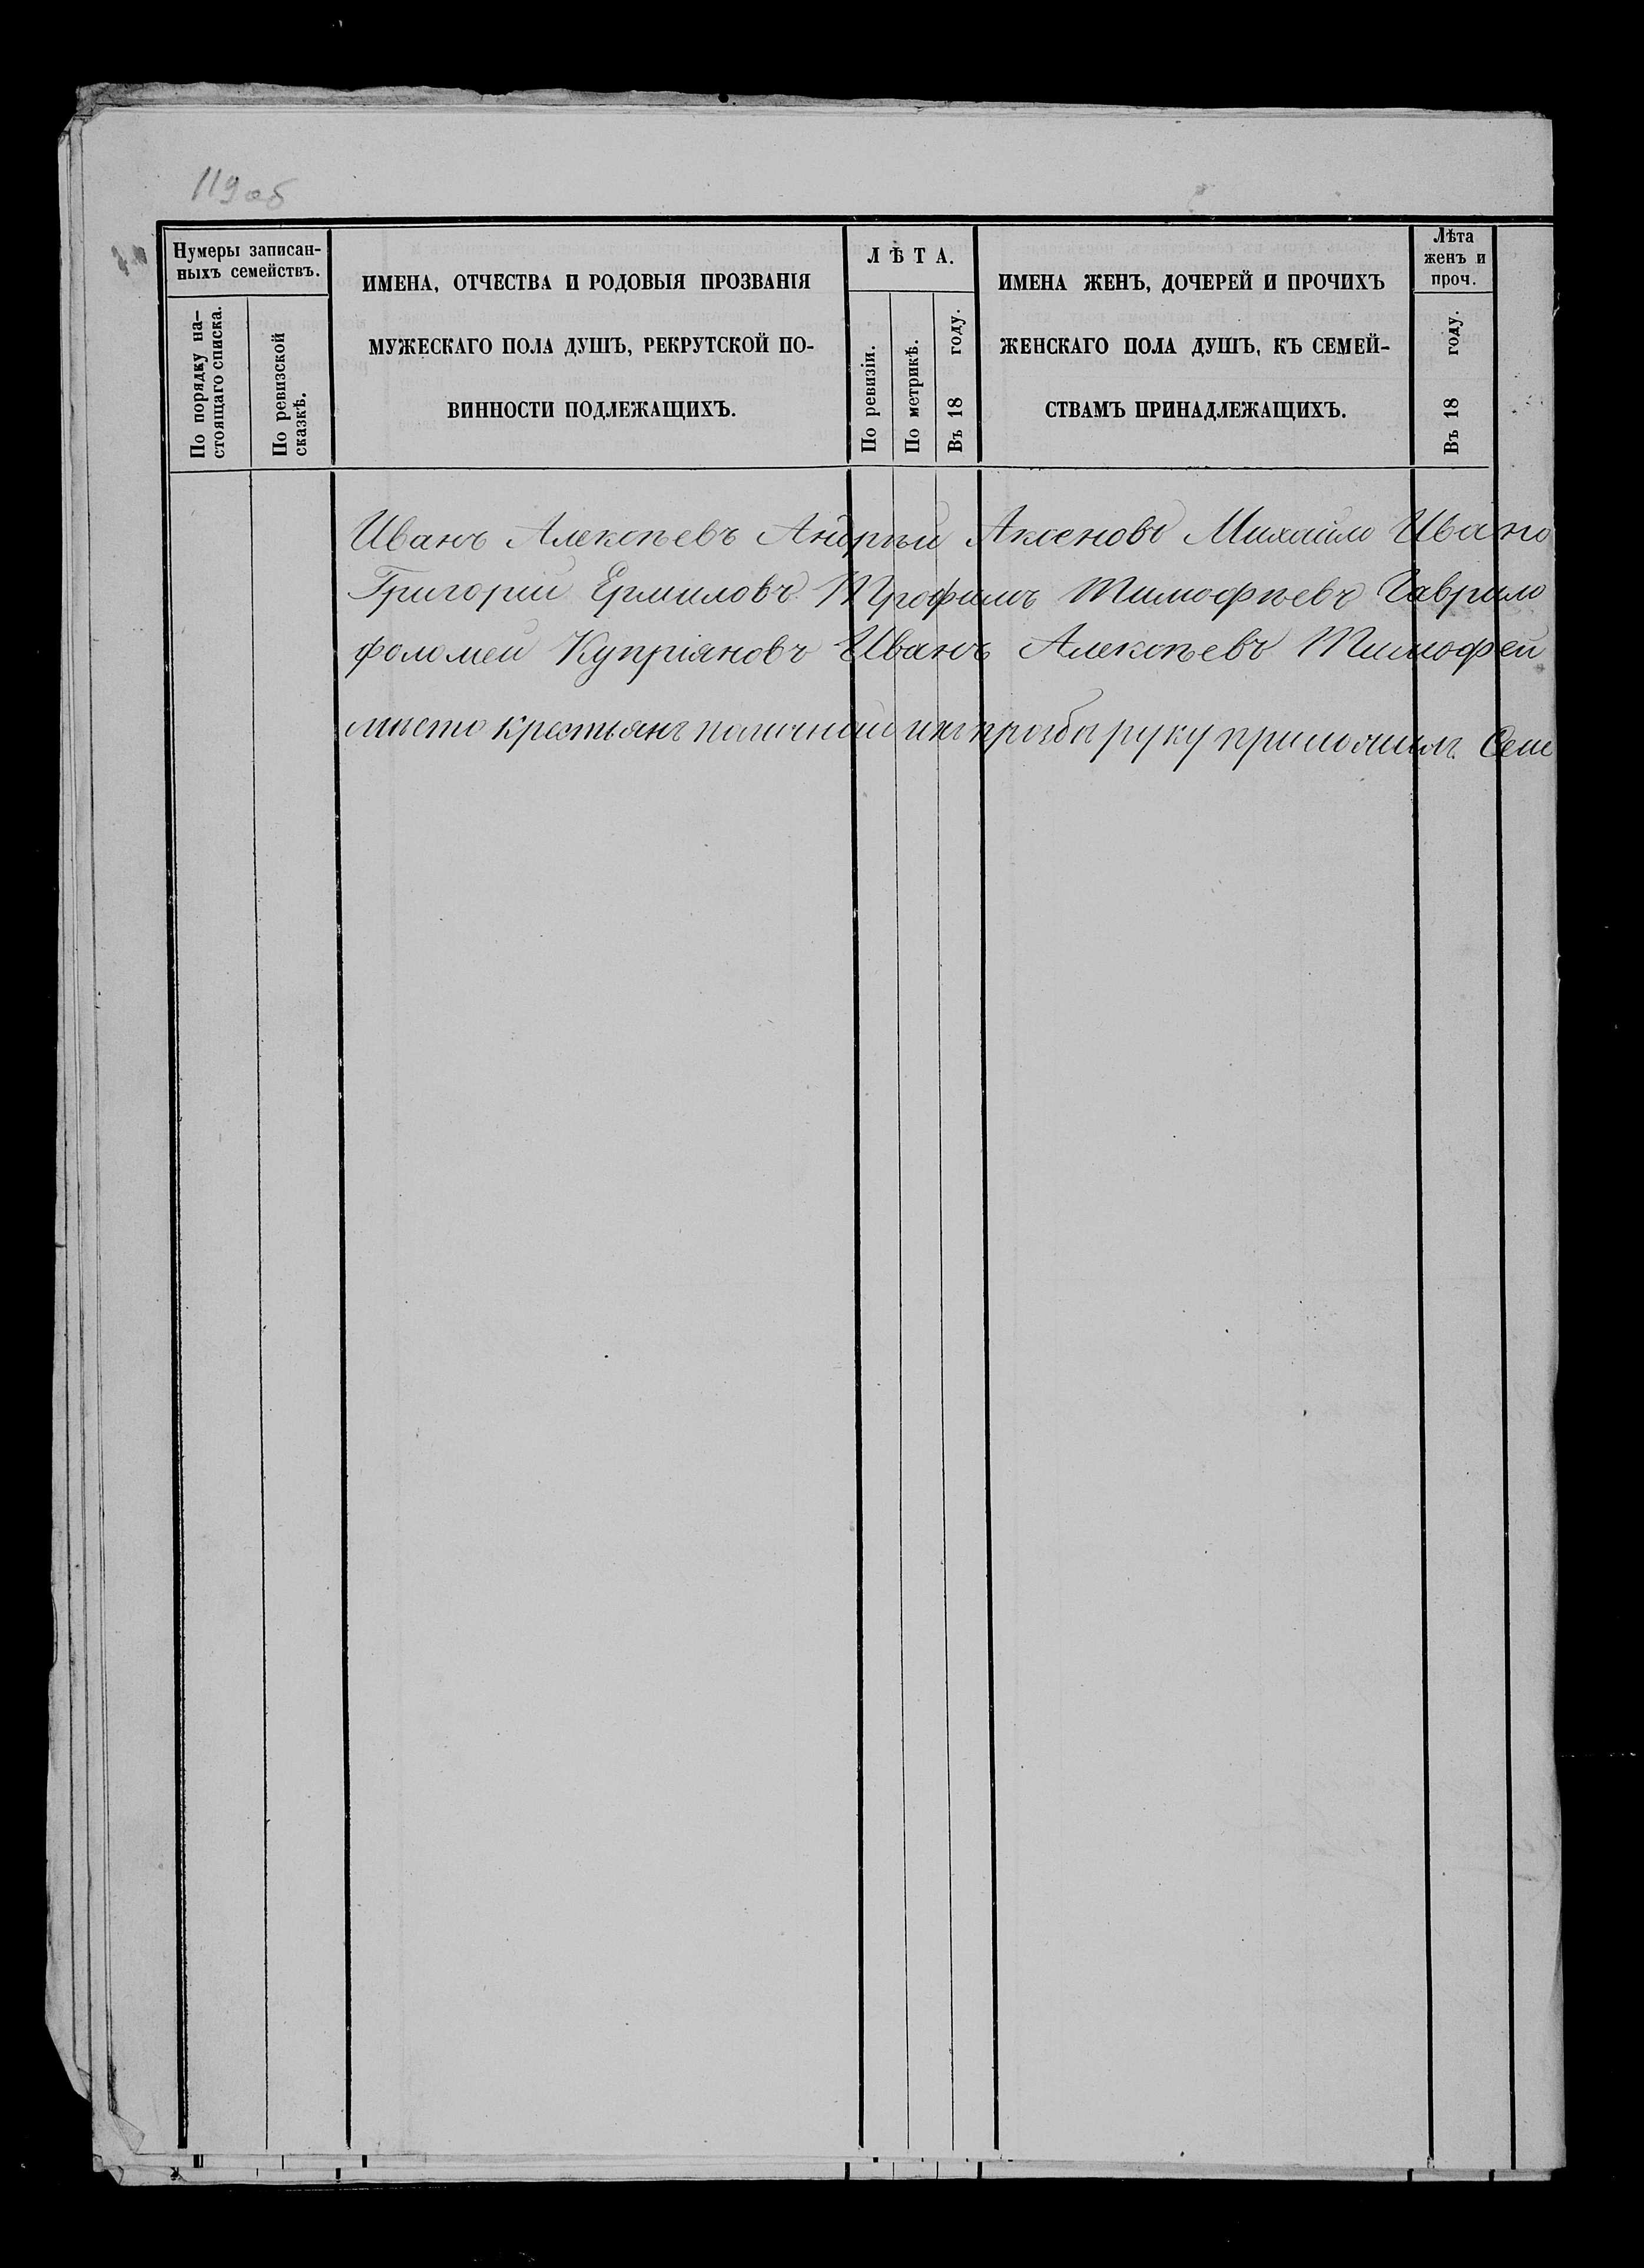 119об
Нумеры записан-
ныхъ семействъ.
По порядку на-
стоящаго списка.
По ревизской
сказкѣ.
ИМЕНА, ОТЧЕСТВА И РОДОВЫЯ ПРОЗВАНІЯ
МУЖЕСКАГО ПОЛА ДУШЪ, РЕКРУТСКОЙ ПО-
ВИННОСТИ ПОДЛЕЖАЩИХЪ.
ЛѢТА.
По ревизіи.
По метрикѣ.
Въ 18 году.
ИМЕНА ЖЕНЪ, ДОЧЕРЕЙ И ПРОЧИХЪ
ЖЕНСКАГО ПОЛА ДУШЪ, КЪ СЕМЕЙ-
СТВАМЪ ПРИНАДЛЕЖАЩИХЪ.
Лѣта
женъ и
проч.
Въ 18 году.
Иванъ Алексѣевъ Андрѣй Аксеновъ Михайло Ивано
Григорій Ермиловъ Трофимъ Тимофѣевъ Гаврило
фоломей Купріяновъ Иванъ Алексѣевъ Тимофей
мѣсто крестьянъ ихъ прозбы руку приложилъ Семе